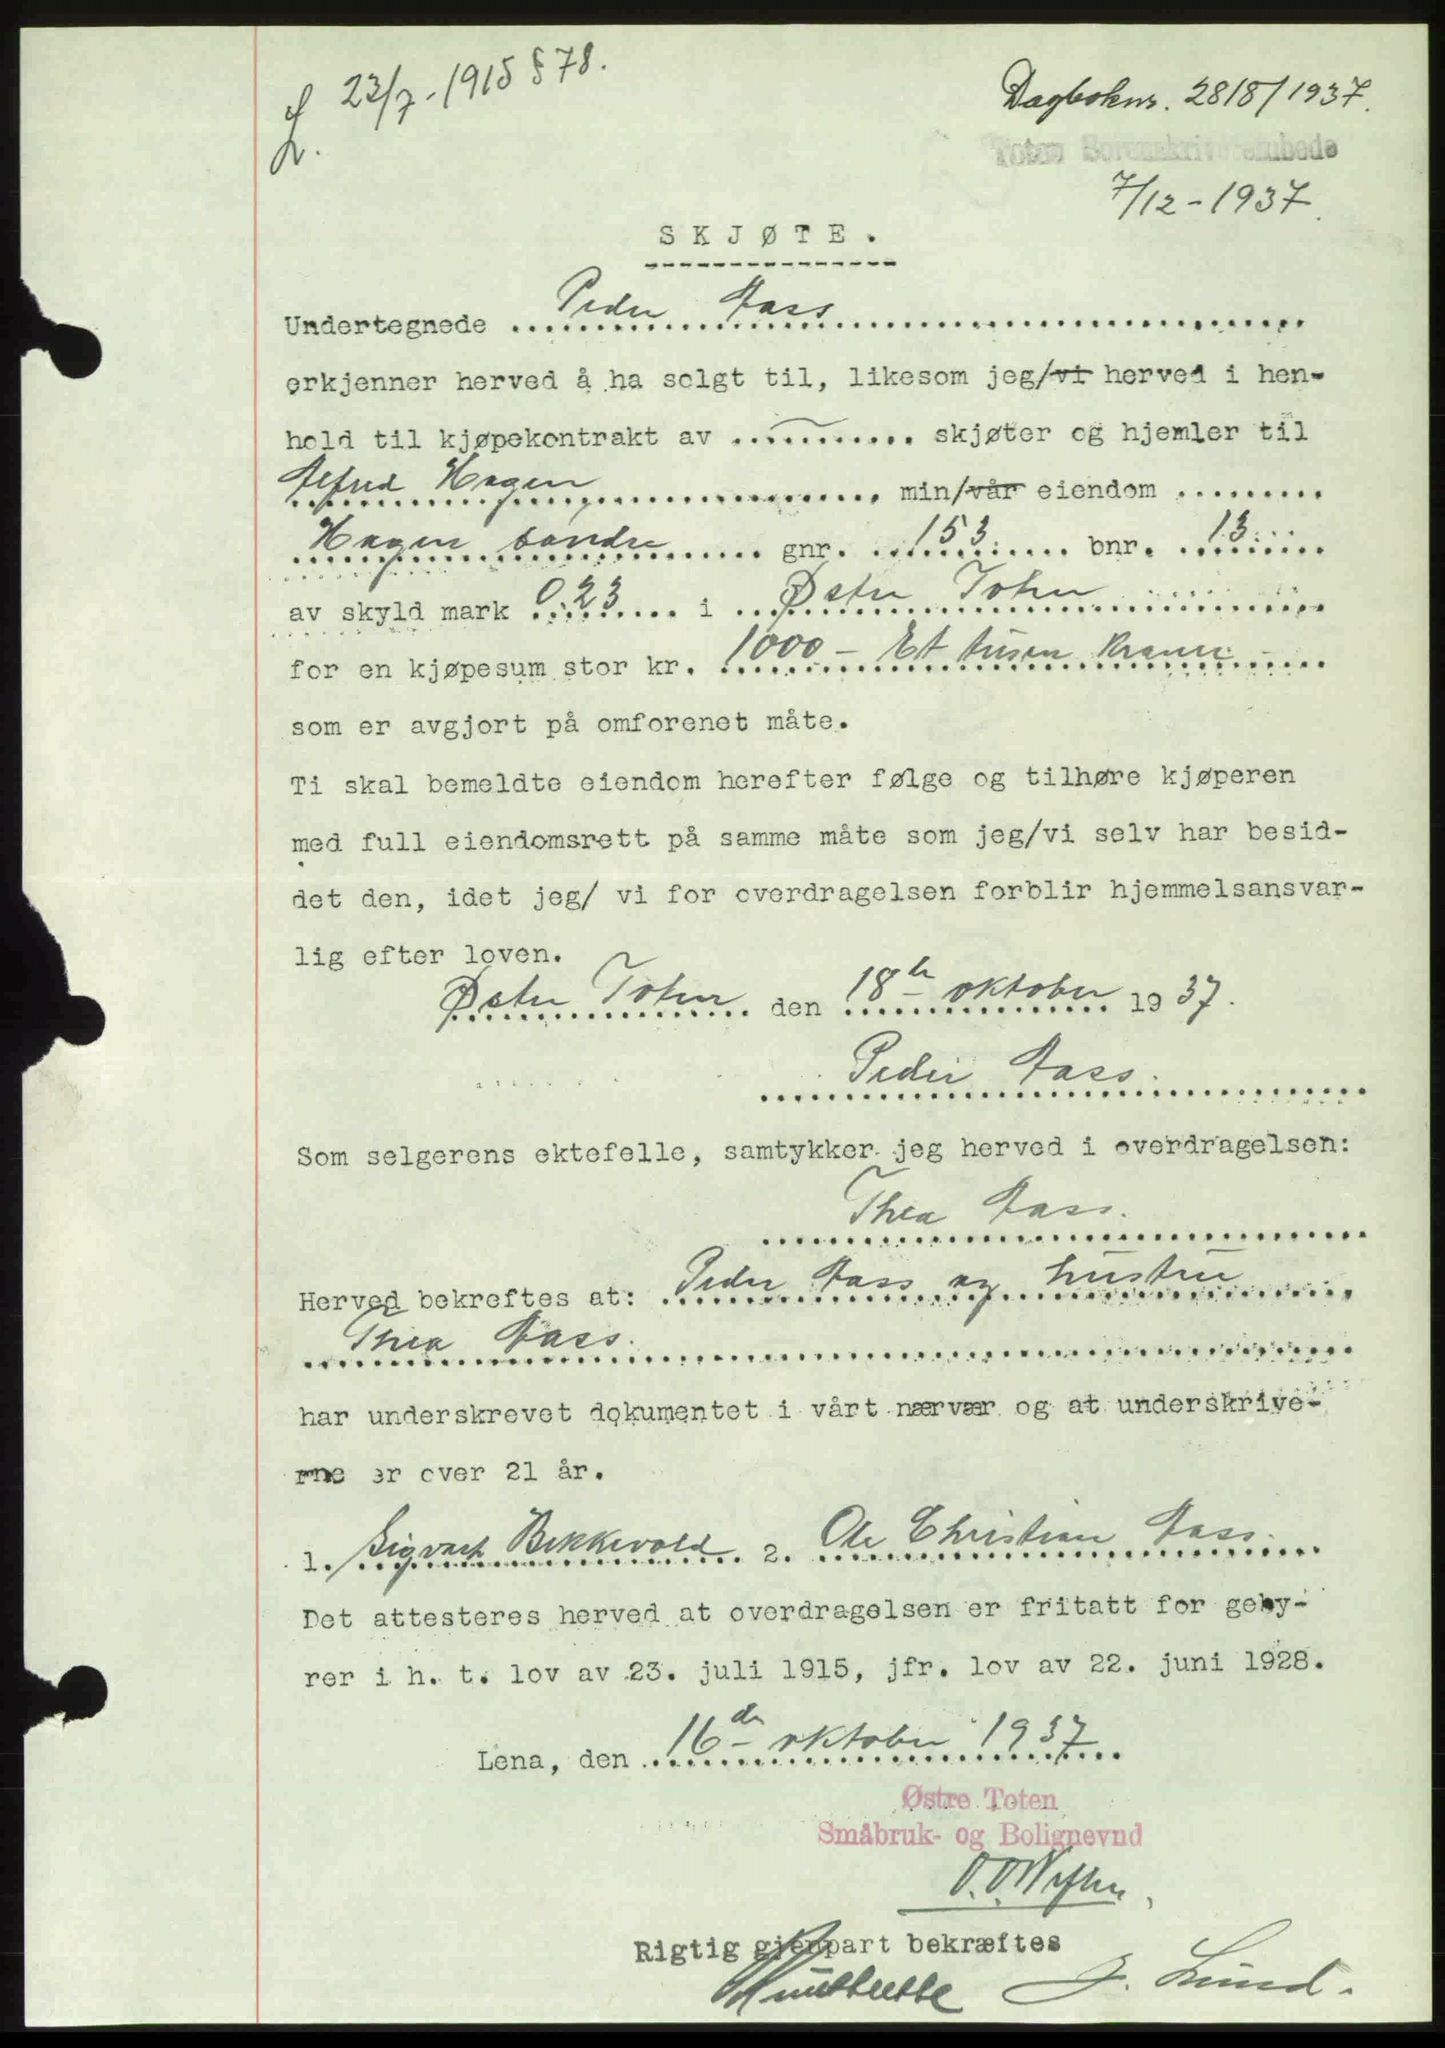 L. 23/7-1915 § 78.
Dagboknr. 2818/1937.
Toten Sorenskriverembede
7/12-1937.
SKJØTE.
Undertegnede Peder Aass
erkjenner herved å ha solgt til, likesom jeg/vi herved i hen-
hold til kjøpekontrakt av .......... skjøter og hjemler til
Alfred Hagen min/vår eiendom .........
Hagen søndre gnr. 153 bnr. 13
av skyld mark 0.23 i Østre Toten
for en kjøpesum stor kr. 1000 - Et tusen kroner -
som er avgjort på omforenet måte.
Ti skal bemeldte eiendom herefter følge og tilhøre kjøperen
med full eiendomsrett på samme måte som jeg/vi selv har besid-
det den, idet jeg/ vi for overdragelsen forblir hjemmelsansvar-
lig efter loven.
Østre Toten den 18de oktober 1937.
Peder Aass.
Som selgerens ektefelle, samtykker jeg herved i overdragelsen:
Thea Aass.
Herved bekreftes at: Peder Aass og hustru
Thea Aass.
har underskrevet dokumentet i vårt nærvær og at underskrive-
rne er over 21 år.
1. Sigvart Bekkevold 2. Ole Christian Aass.
Det attesteres herved at overdragelsen er fritatt for geby-
rer i h. t. lov av 23. juli 1915, jfr. lov av 22. juni 1928.
Lena, den 16de oktober 1937
Østre Toten
Småbruk- og Bolignevnd
Rigtig gjenpart bekræftes
J. Lund.